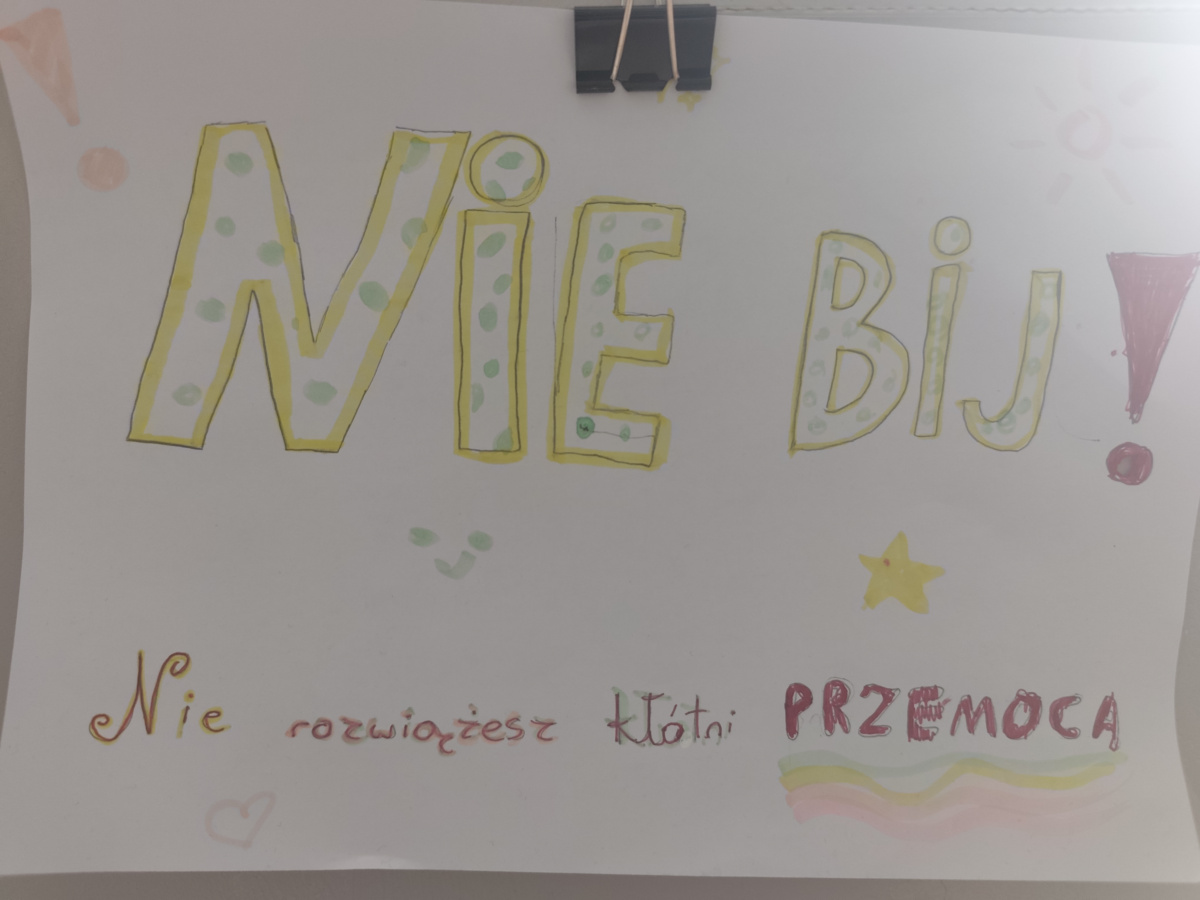 NiE BiJ!
Nie rozwiążesz kłótni PRZEMOCĄ